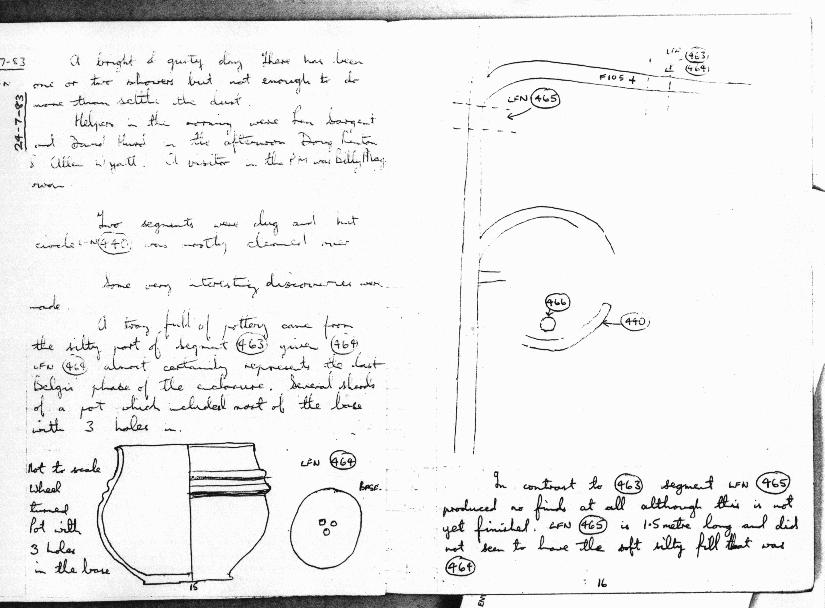 7-83
24-7-83
A bright & gusty day There has been
one or two showers but not enough to do
more than settle the dust.
Helpers in the morning were Len Sargent
and David Hurd in the afternoon Doug
& Allen Wyatt. A visitor in the P.M was Billy
Two segments were dug and hut
circle LFN 440 was mostly cleaned over
Some very interesting discoveries were
made.
A tray full of pottery came from
the silty part of segment 463 given 464
LFN 464 almost certainly represents the last
Belgic phase of the enclosure. Several sherds
of a pot which included most of the base
with 3 holes in.
Not to scale
Wheel
turned
Pot with
3 holes
in the base
LFN 464
BASE.
15
LFN 463
464
F105
LFN 465
466
440
In contrast to 463 segment LFN 465
produced no finds at all although this is not
yet finished. LFN 465 is 1.5 metre long and did
not seem to have the soft silty fill that was
464
16